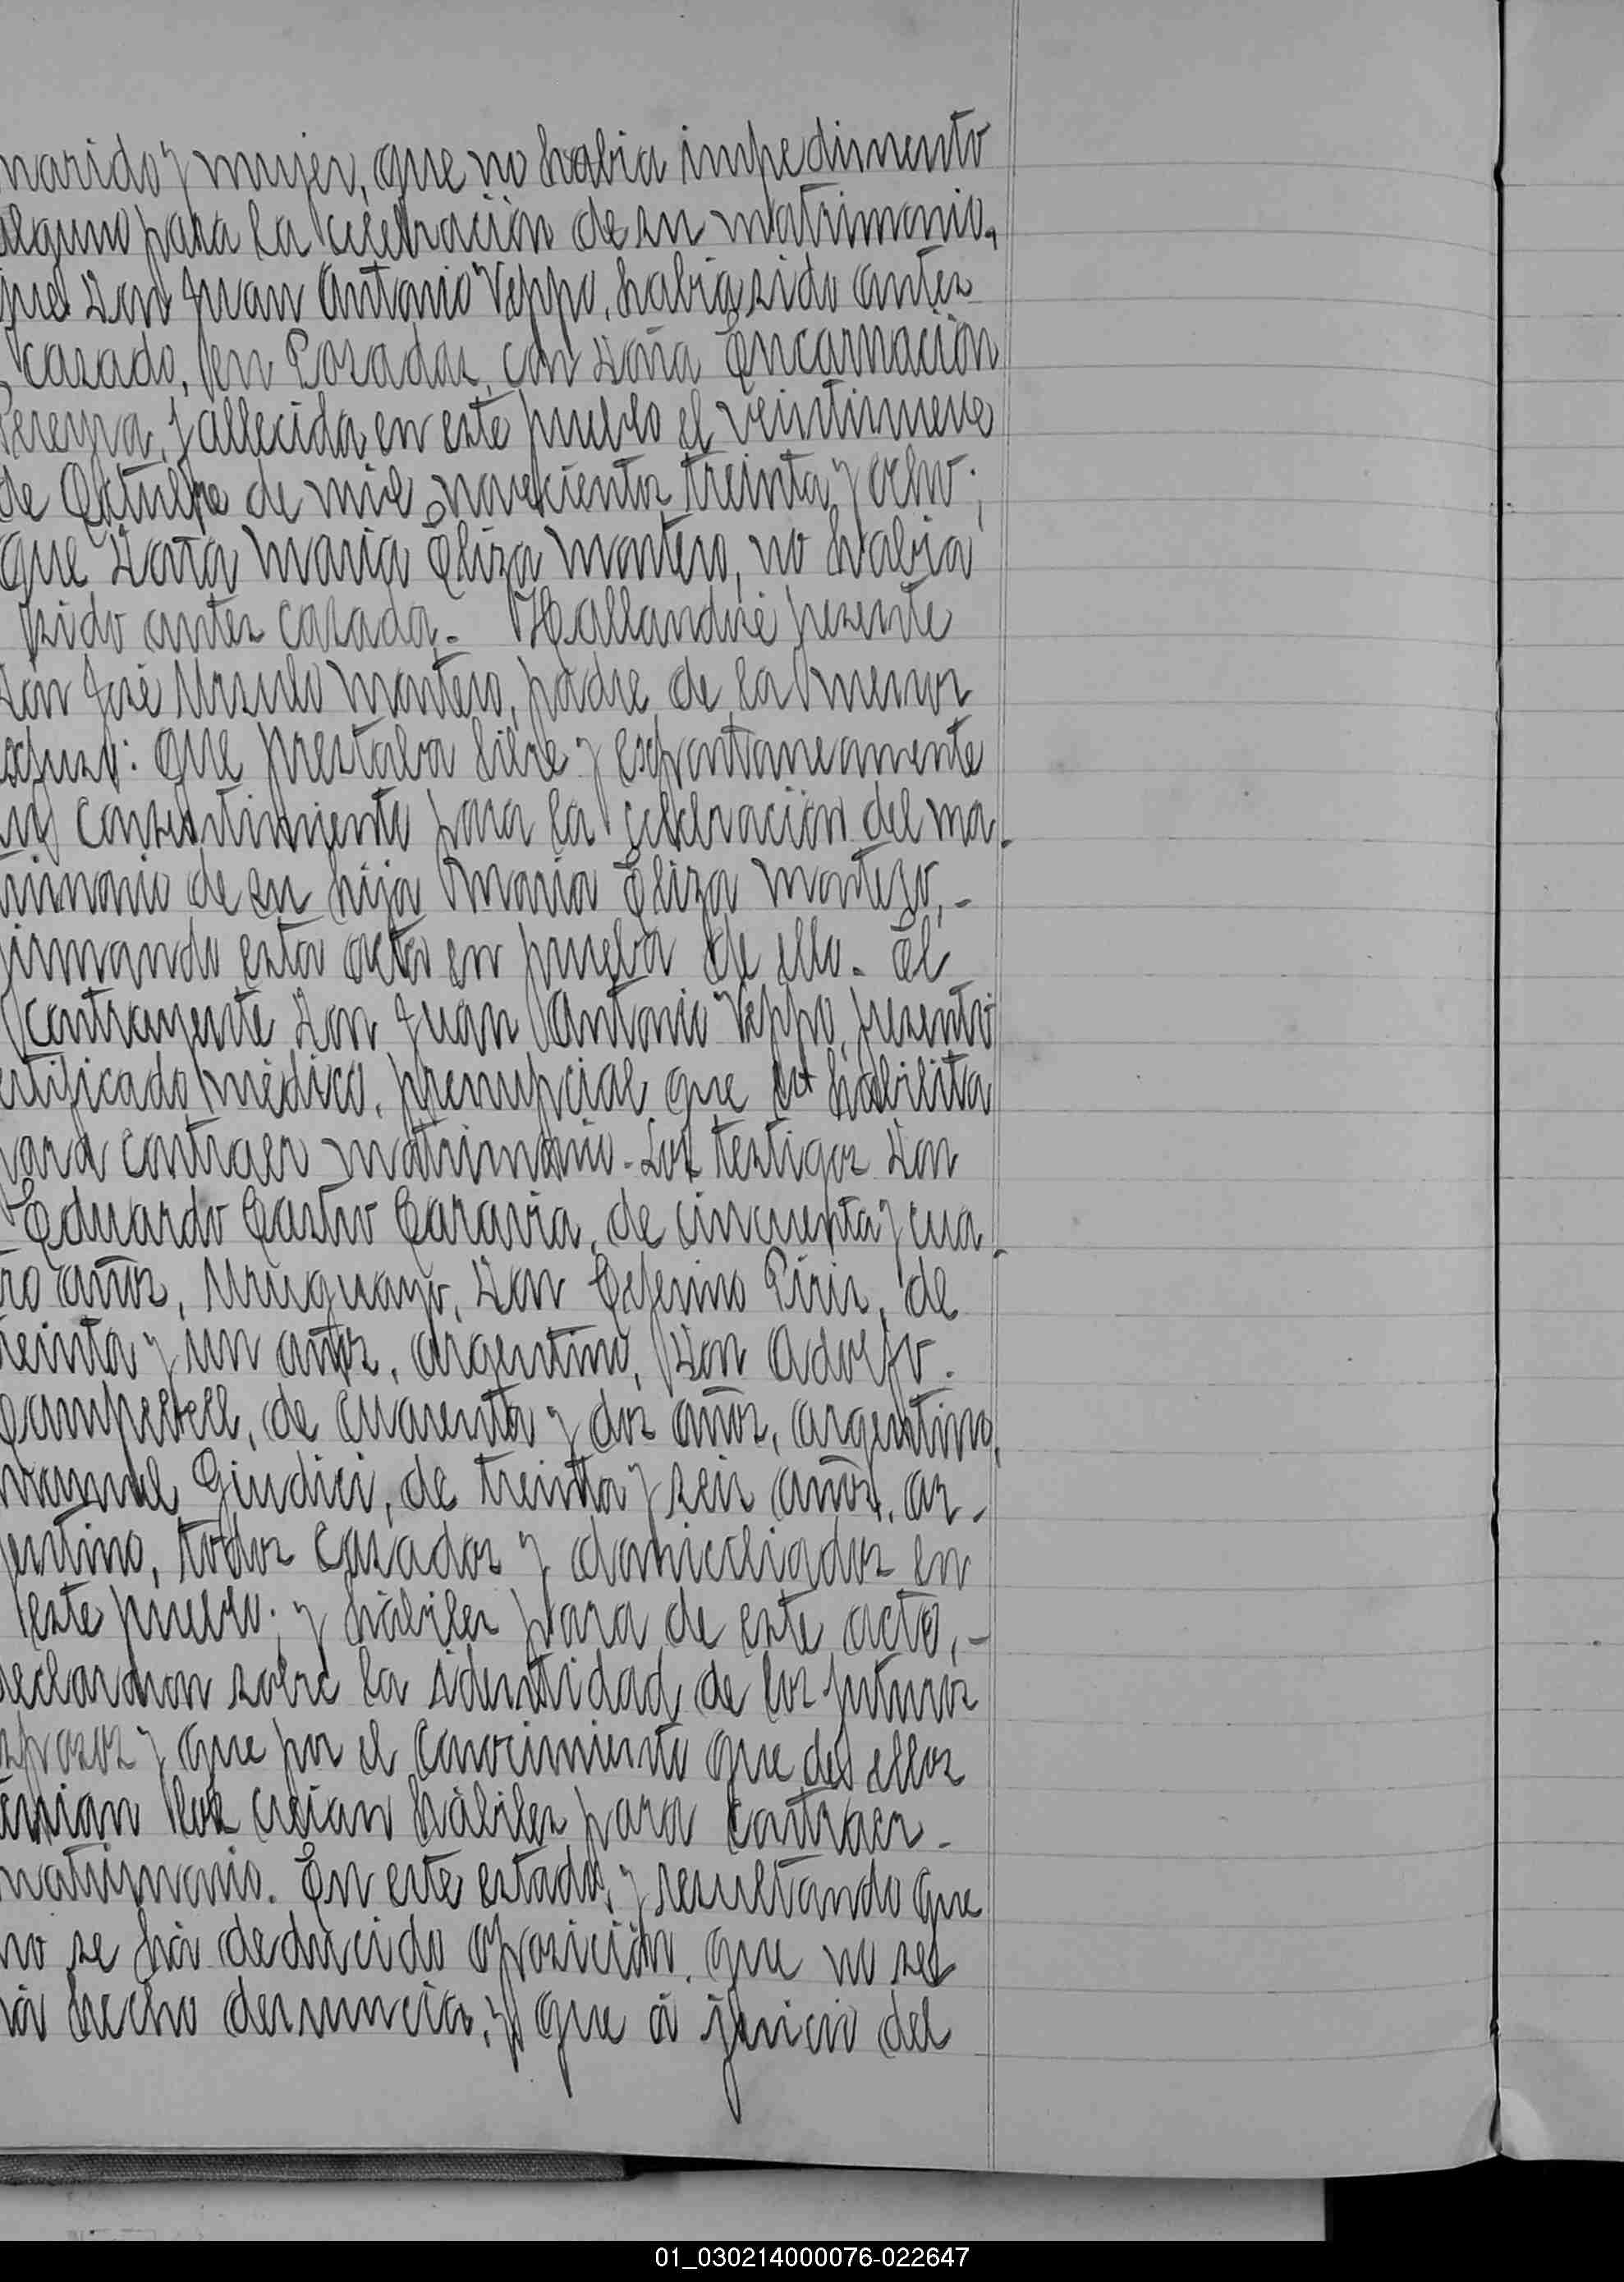 marido y mujer, que no habia impedimento
alguno para la celebración de su matrimonio,
que Don Juan Antonio Veppo, habia sido antes
casado, en Posadas, con Doña Encarnación
Pereyra, fallecida en este pueblo el veintinueve
de Octubre de mil novecientos treinta y ocho;
que Doña Maria Eliza Montero, no habia
sido antes casada. Hallandose presente
Don José Ursulo Montero, padre de la menor
expuso: que prestaba libre y espontaneamente
su consentimiento para la celebración del ma-
trimonio de su hija Maria Eliza Montero,-
firmando esta acta en prueba de ello. El
contrayente Don Juan Antonio Veppo, presentó
certificado médico, prenupcial que lo habilita
para contraer matrimonio. Los testigos Don
Eduardo Castro Caravia, de cincuenta y cua-
tro años, Uruguayo, Don Ceferino Piris, de
treinta y un años, argentino, Don Adolfo
de cuarenta y dos años, argentino,
Manuel Giudici, de treinta y seis años, ar-
gentino, todos casados y domiciliados en
este pueblo; y hábiles para de este acto,-
declararon sobre la identidad de los futuros
esposos y que por el conocimiento que de ellos
tenian los creian hábiles para contraer-
matrimonio. En este estado, y resultando que
no se há deducido oposición, que no se
há hecho denuncia, y que á juicio del
01_030214000076-022647